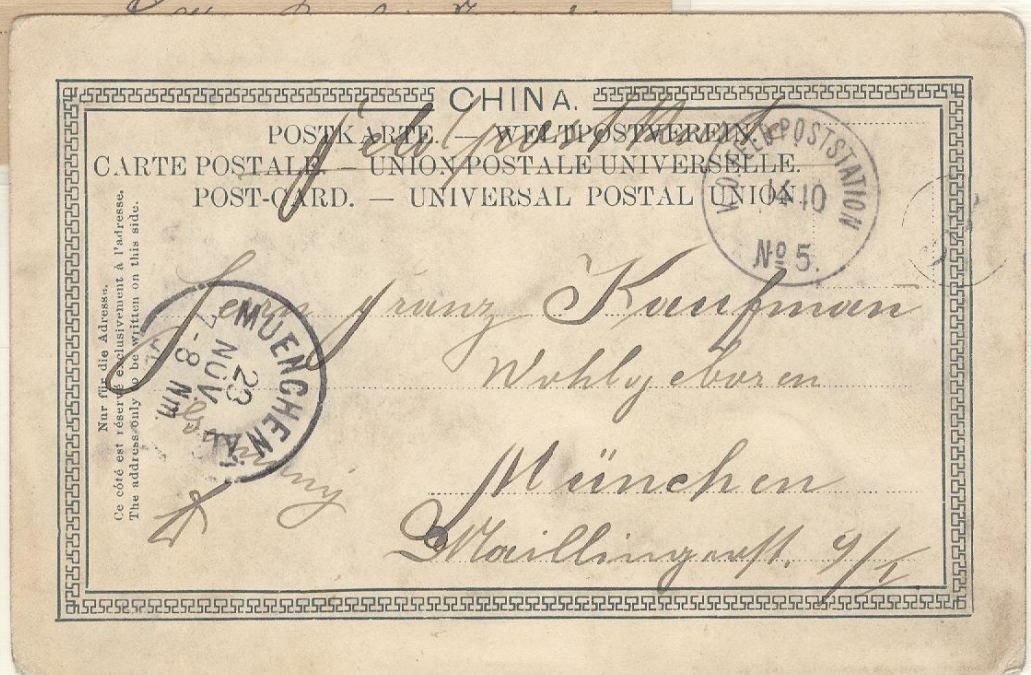 CHINA.
POSTKARTE. — WELTPOSTVEREIN.
CARTE POSTALE. — UNION POSTALE UNIVERSELLE.
POST-CARD. — UNIVERSAL POSTAL UNION.
Feldpost
K.D. FELD-POSTSTATION
14 10
No 5.
Nur für die Adresse.
Ce côté est réservé exclusivement à l'adresse.
The address only to be written on this side.
Herrn Franz Kaufman
Wohlgeboren
MUENCHEN
23 NOV.
7-8 Nm.
München
Maillingerstr. 9/I